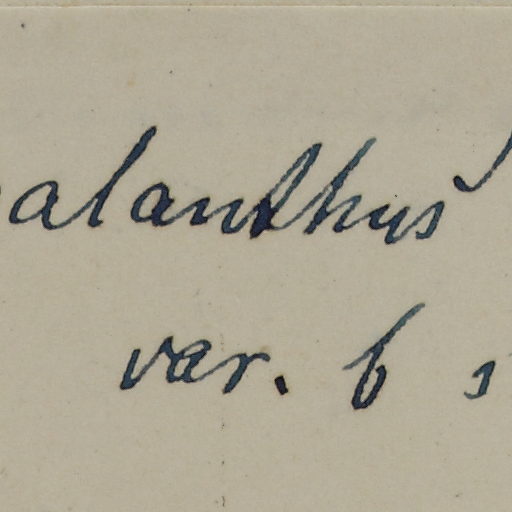 alanthus
var. b s